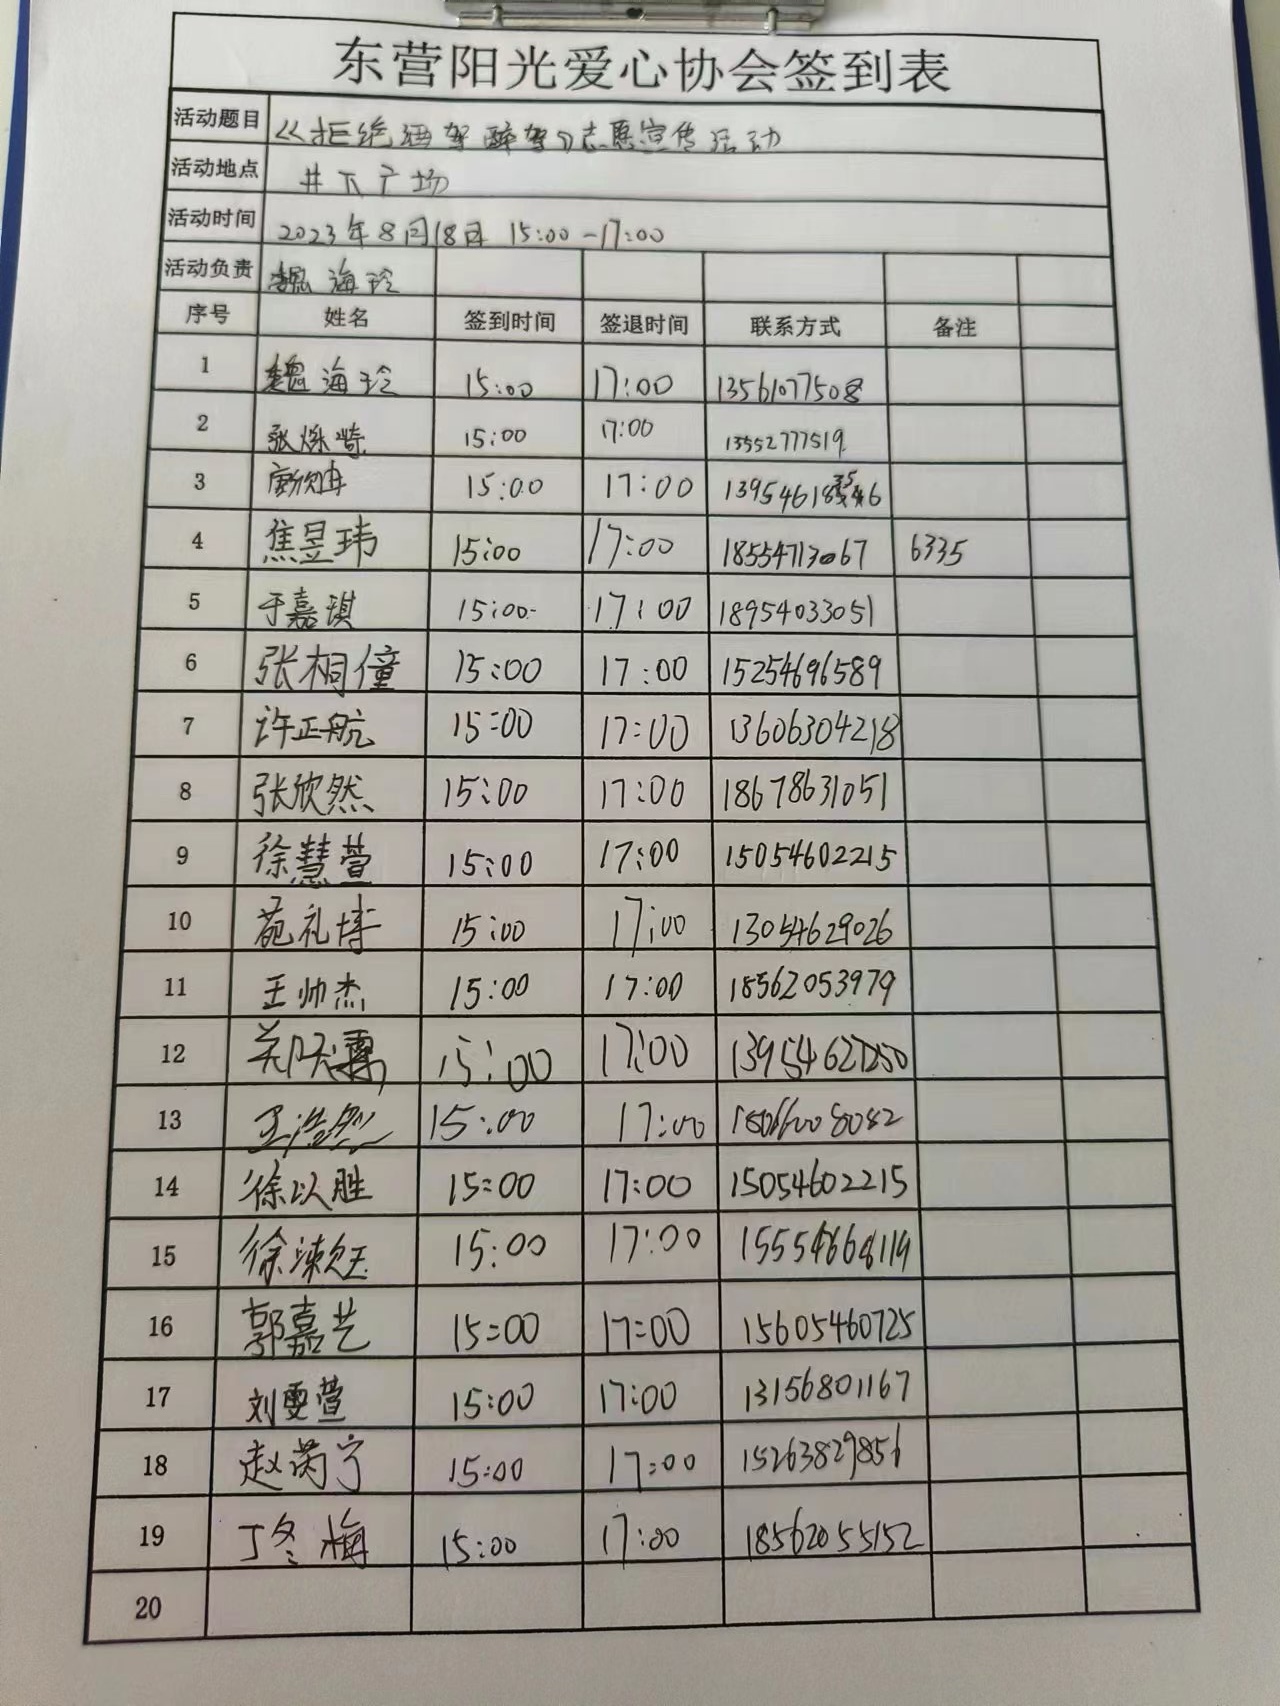 东营阳光爱心协会签到表
活动题目 《拒绝酒驾醉驾》志愿宣传活动
活动地点 井下广场
活动时间 2023年8月18日 15:00-17:00
活动负责 魏海玲
序号 姓名 签到时间 签退时间 联系方式 备注
1 魏海玲 15:00 17:00 13561077508
2 张烁崎 15:00 17:00 13552777519
3 15:00 17:00
4 焦昱玮 15:00 17:00 18554713067 6335
5 于嘉琪 15:00 17:00 18954033051
6 张桐僮 15:00 17:00 15254696589
7 许正航 15:00 17:00 13606304218
8 张欣然 15:00 17:00 18678631051
9 徐慧萱 15:00 17:00 15054602215
10 苑礼博 15:00 17:00 13054629026
11 王帅杰 15:00 17:00 18562053979
12 15:00 17:00 13954627250
13 王浩然 15:00 17:00
14 徐以胜 15:00 17:00 15054602215
15 15:00 17:00
16 郭嘉艺 15:00 17:00 15605460725
17 刘雯萱 15:00 17:00 13156801167
18 赵芮宁 15:00 17:00 15263829856
19 丁冬梅 15:00 17:00 18562055152
20